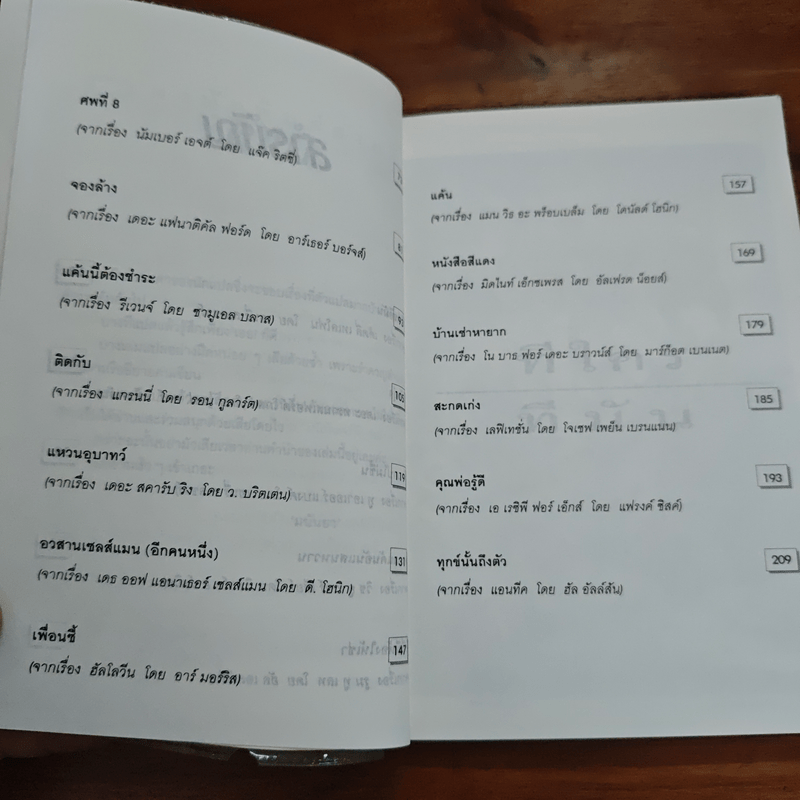 ศพที่ 8
(จากเรื่อง นัมเบอร์ เอจต์ โดย แจ๊ค ริตชี่)
จองล้าง
(จากเรื่อง เดอะ แฟนาติคัล ฟอร์ด โดย อาร์เธอร์ บอร์จส์)
แค้นนี้ต้องชำระ
(จากเรื่อง รีเวนจ์ โดย ซามูเอล บลาส)
ติดกับ
(จากเรื่อง แกรนนี่ โดย รอน กูลาร์ต)
105
แหวนอุบาทว์
(จากเรื่อง เดอะ สคารับ ริง โดย ว. บริตเตน)
119
อวสานเซลส์แมน (อีกคนหนึ่ง)
(จากเรื่อง เดธ ออฟ แอนาเธอร์ เซลส์แมน โดย ดี. โฮนิก)
131
เพื่อนซี้
(จากเรื่อง ฮัลโลวีน โดย อาร์ มอร์ริส)
147
แค้น
157
(จากเรื่อง แมน วิธ อะ พร็อบเบล็ม โดย โดนัลด์ โฮนิก)
หนังสือสีแดง
169
(จากเรื่อง มิดไนท์ เอ็กซเพรส โดย อัลเฟรด น็อยส์)
บ้านเช่าหายาก
179
(จากเรื่อง โน บาธ ฟอร์ เดอะ บราวน์ส์ โดย มาร์ก็อต เบนเนต)
สะกดเก่ง
185
(จากเรื่อง เลฟิเทชั่น โดย โจเซฟ เพย์น เบรนแนน)
คุณพ่อรู้ดี
193
(จากเรื่อง เอ เรซิพี ฟอร์ เอ็กส์ โดย แฟรงค์ ซิสค์)
ทุกข์นั้นถึงตัว
209
(จากเรื่อง แอนทีค โดย ฮัล อัลล์สัน)